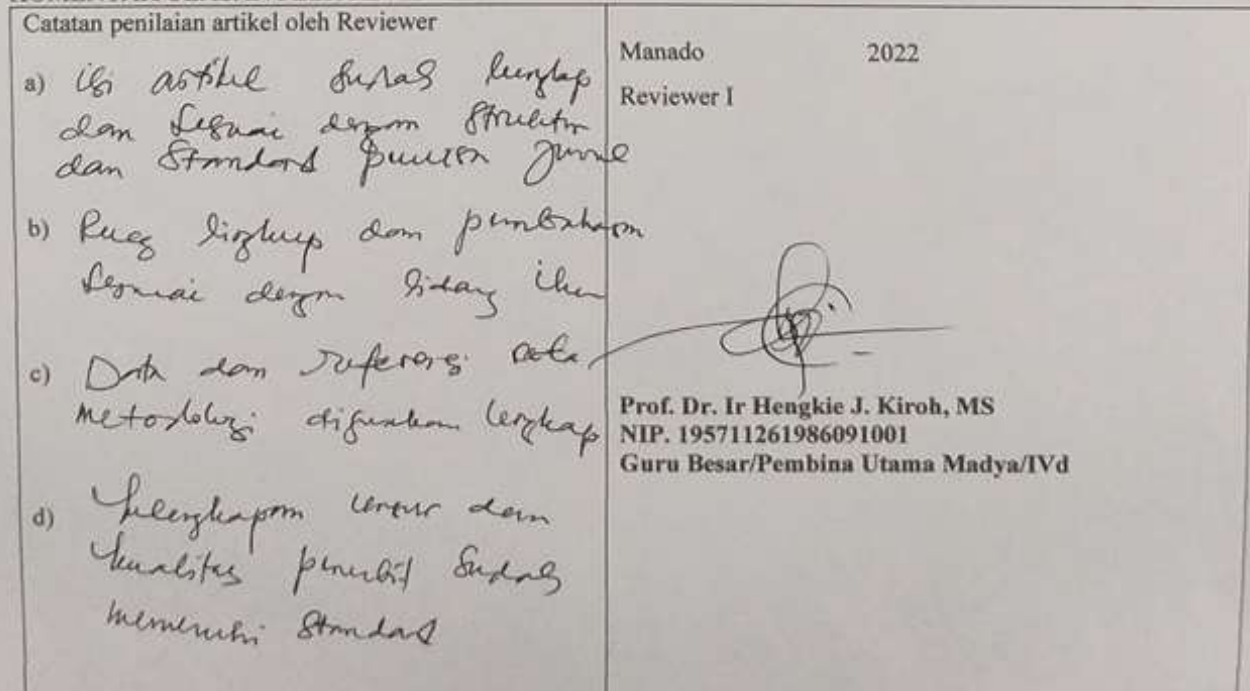 Catatan penilaian artikel oleh Reviewer
a) isi artikel sudah lengkap
dan sesuai dengan struktur
dan Standard jurnal
b) Ruang lingkup dan pembahasan
sesuai dengan bidang ilmu
c) Data dan referensi serta
metodologi digunakan lengkap
d) kelengkapan unsur dan
kualitas penerbit sudah
memenuhi Standard
Manado 2022
Reviewer I
Prof. Dr. Ir Hengkie J. Kiroh, MS
NIP. 195711261986091001
Guru Besar/Pembina Utama Madya/IVd